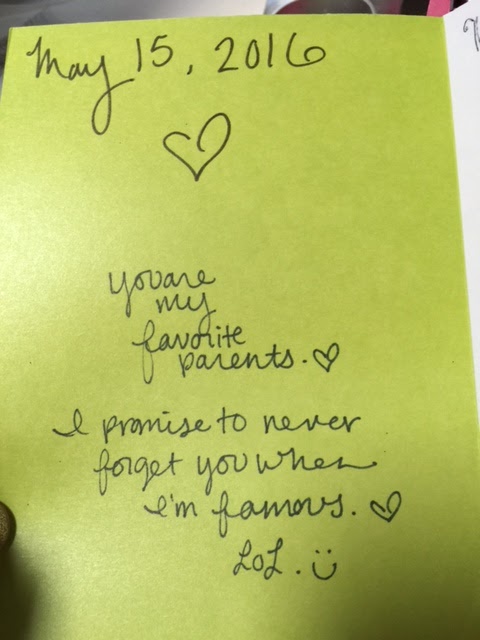 May 15, 2016
♡
you are
my
favorite
parents. ♡
I promise to never
forget you when
I'm famous. ♡
LOL. ü